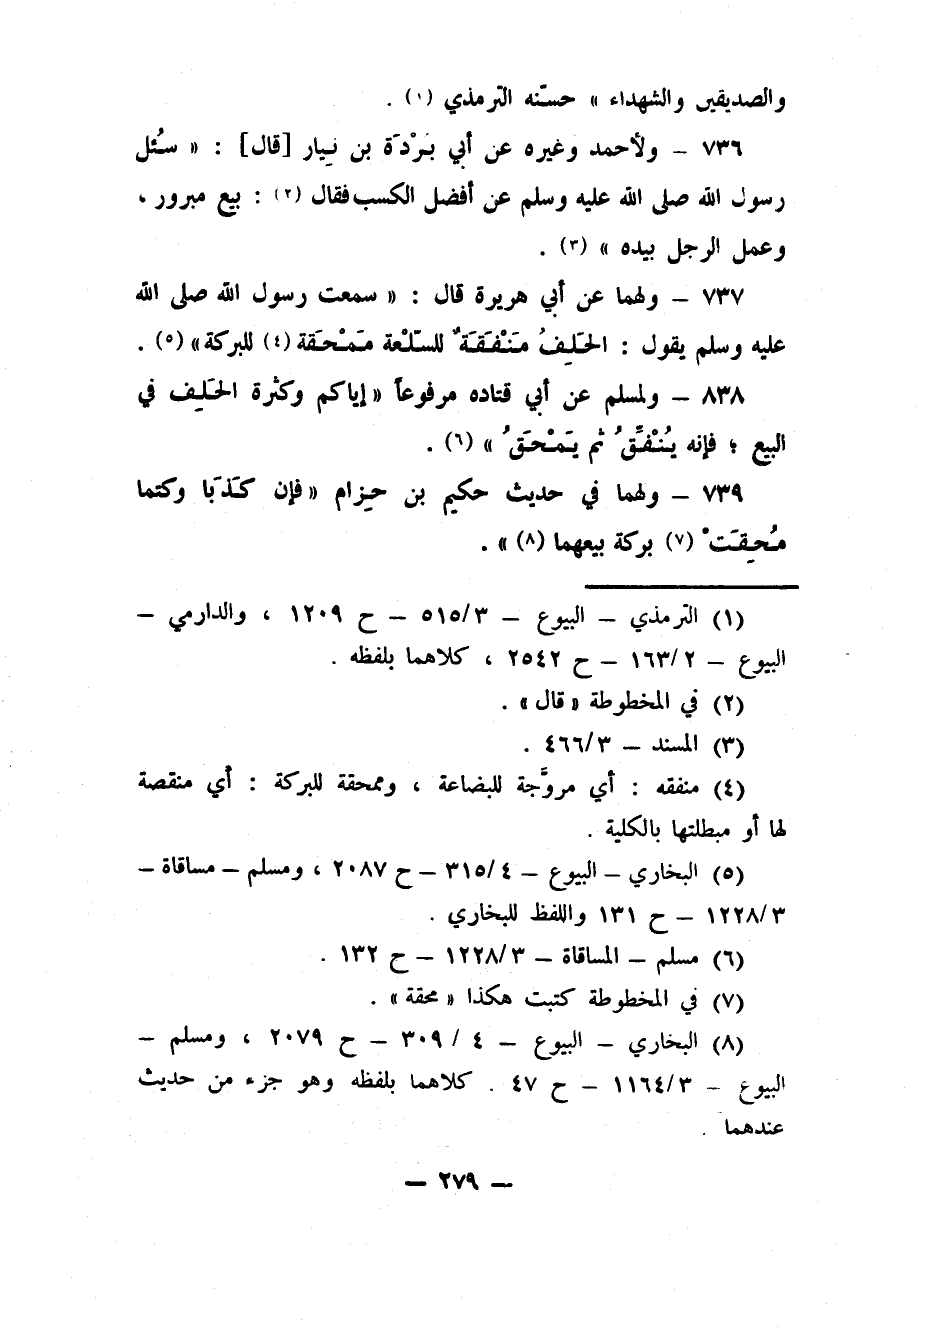 والصديقين والشهداء » حسّنه الترمذي (١) .
٧٣٦ – ولأحمد وغيره عن أبي بَرْدَة بن نيار [قال] : « سئل
رسول الله صلى الله عليه وسلم عن أفضل الكسب فقال (٢) : بيع مبرور ،
وعمل الرجل بيده » (٣) .
٧٣٧ – ولهما عن أبي هريرة قال : « سمعت رسول الله صلى الله
عليه وسلم يقول : الحَلِفُ مَنْفَقَةٌ للسّلْعة مَمْحَقة (٤) للبركة » (٥) .
٨٣٨ – ولمسلم عن أبي قتاده مرفوعاً « إياكم وكثرة الحَلِف في
البيع ؛ فإنه يُنْفِّقُ ثم يَمْحَقُ » (٦) .
٧٣٩ – ولهما في حديث حكيم بن حِزام « فإن كَذَبَا وكتما
مُحِقَتْ (٧) بركة بيعهما (٨) » .
(١) الترمذي – البيوع – ٥١٥/٣ – ح ١٢٠٩ ، والدارمي –
البيوع – ١٦٣/٢ – ح ٢٥٤٢ ، كلاهما بلفظه .
(٢) في المخطوطة « قال » .
(٣) المسند – ٤٦٦/٣ .
(٤) منفقه : أي مروَّجة للبضاعة ، وممحقة للبركة : أي منقصة
لها أو مبطلتها بالكلية .
(٥) البخاري – البيوع – ٣١٥/٤ – ح ٢٠٨٧ ، ومسلم – مساقاة –
١٢٢٨/٣ – ح ١٣١ واللفظ للبخاري .
(٦) مسلم – المساقاة – ١٢٢٨/٣ – ح ١٣٢ .
(٧) في المخطوطة كتبت هكذا « محقة » .
(٨) البخاري – البيوع – ٤ / ٣٠٩ – ح ٢٠٧٩ ، ومسلم –
البيوع – ١١٦٤/٣ – ح ٤٧ . كلاهما بلفظه وهو جزء من حديث
عندهما .
– ٢٧٩ –